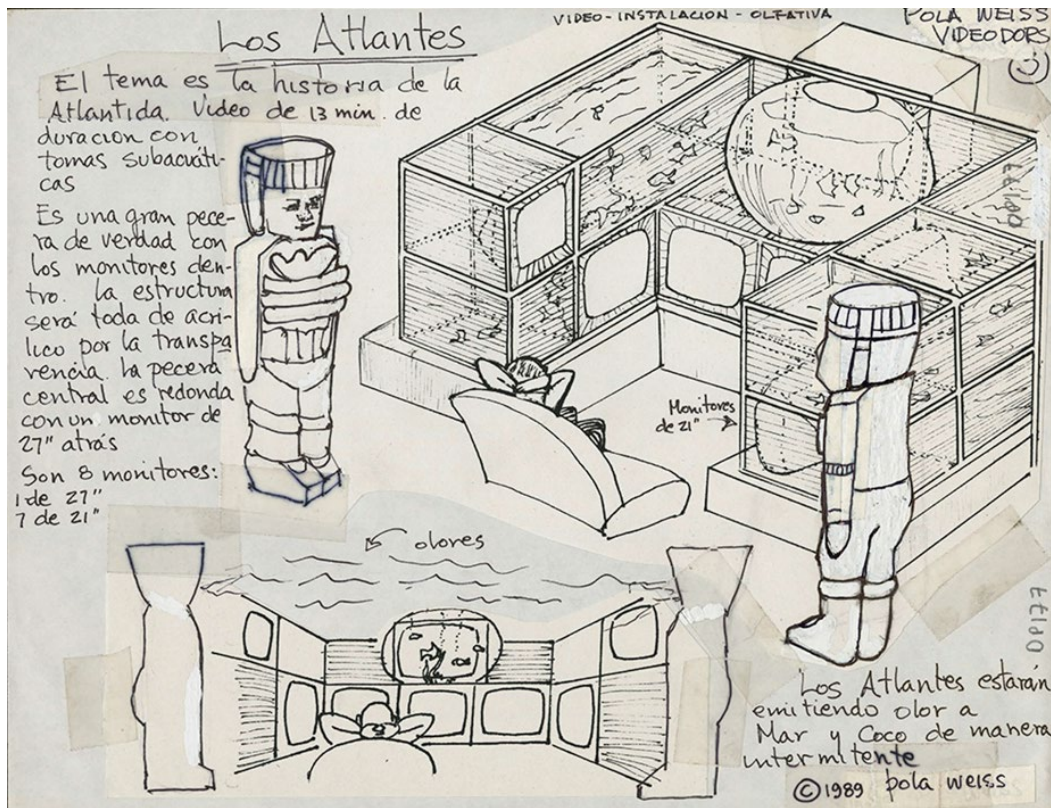 Los Atlantes
VIDEO-INSTALACION-OLFATIVA
POLA WEISS
VIDEODORS
El tema es la historia de la
Atlantida. Video de 13 min. de
duracion con
tomas subacuáti-
cas
Es una gran pece-
ra de verdad con
los monitores den-
tro. La estructura
será toda de acrí-
lico por la transpa
rencia. La pecera
central es redonda
con un monitor de
27" atrás
Son 8 monitores:
1 de 27"
7 de 21"
Monitores
de 21"
olores
Los Atlantes estarán
emitiendo olor a
Mar y Coco de manera
intermitente
© 1989 pola weiss